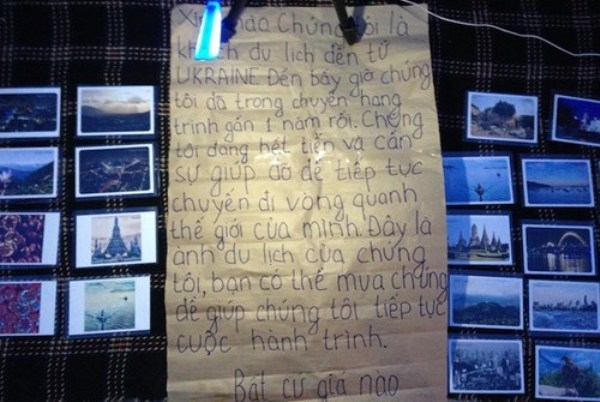 Xin chào Chúng tôi là
khách du lịch đến từ
UKRAINE Đến bây giờ chúng
tôi đã trong chuyến hang
trinh gần 1 năm rồi. Chúng
tôi đang hết tiền và cần
sự giúp đỡ để tiếp tục
chuyến đi vòng quanh
thế giới của mình. Đây là
ảnh du lịch của chúng
tôi, bạn có thể mua chúng
để giúp chúng tôi tiếp tục
cuộc hành trình.
Bất cứ giá nào